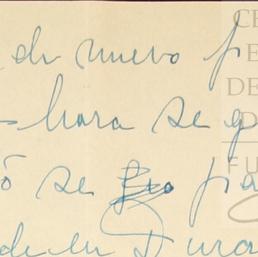 de nuevo p
hora se q
ó se pa
de en Dura
CE
E
DE
D
FU